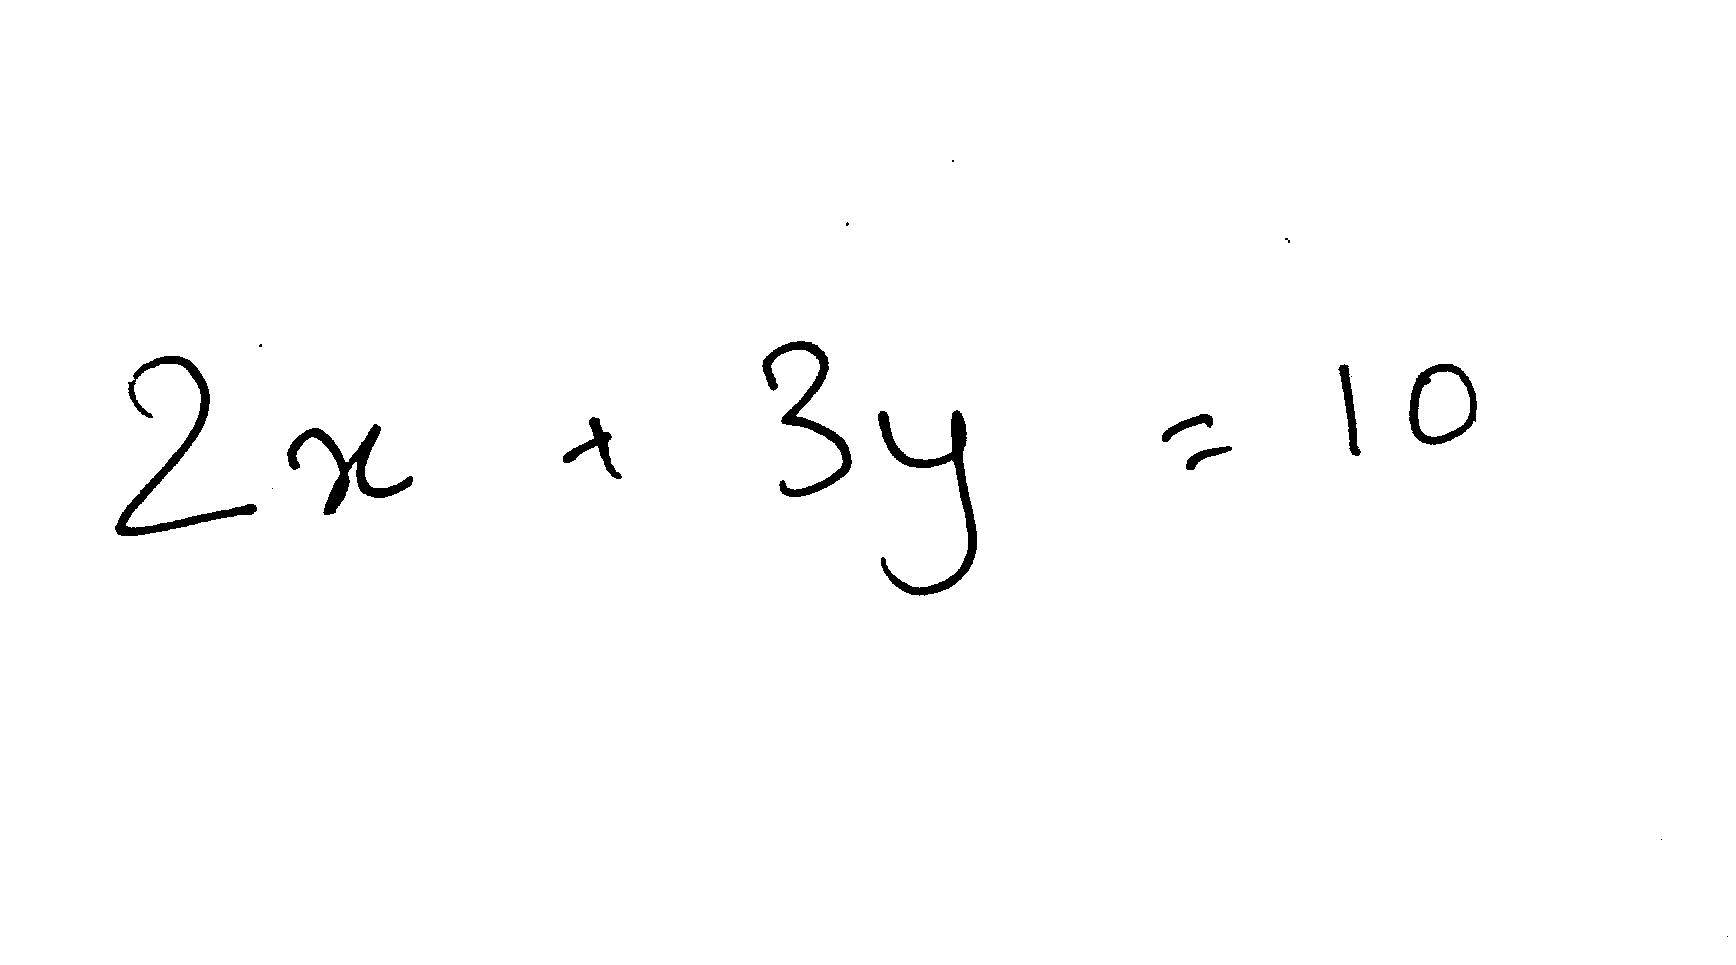 2x + 3y = 10